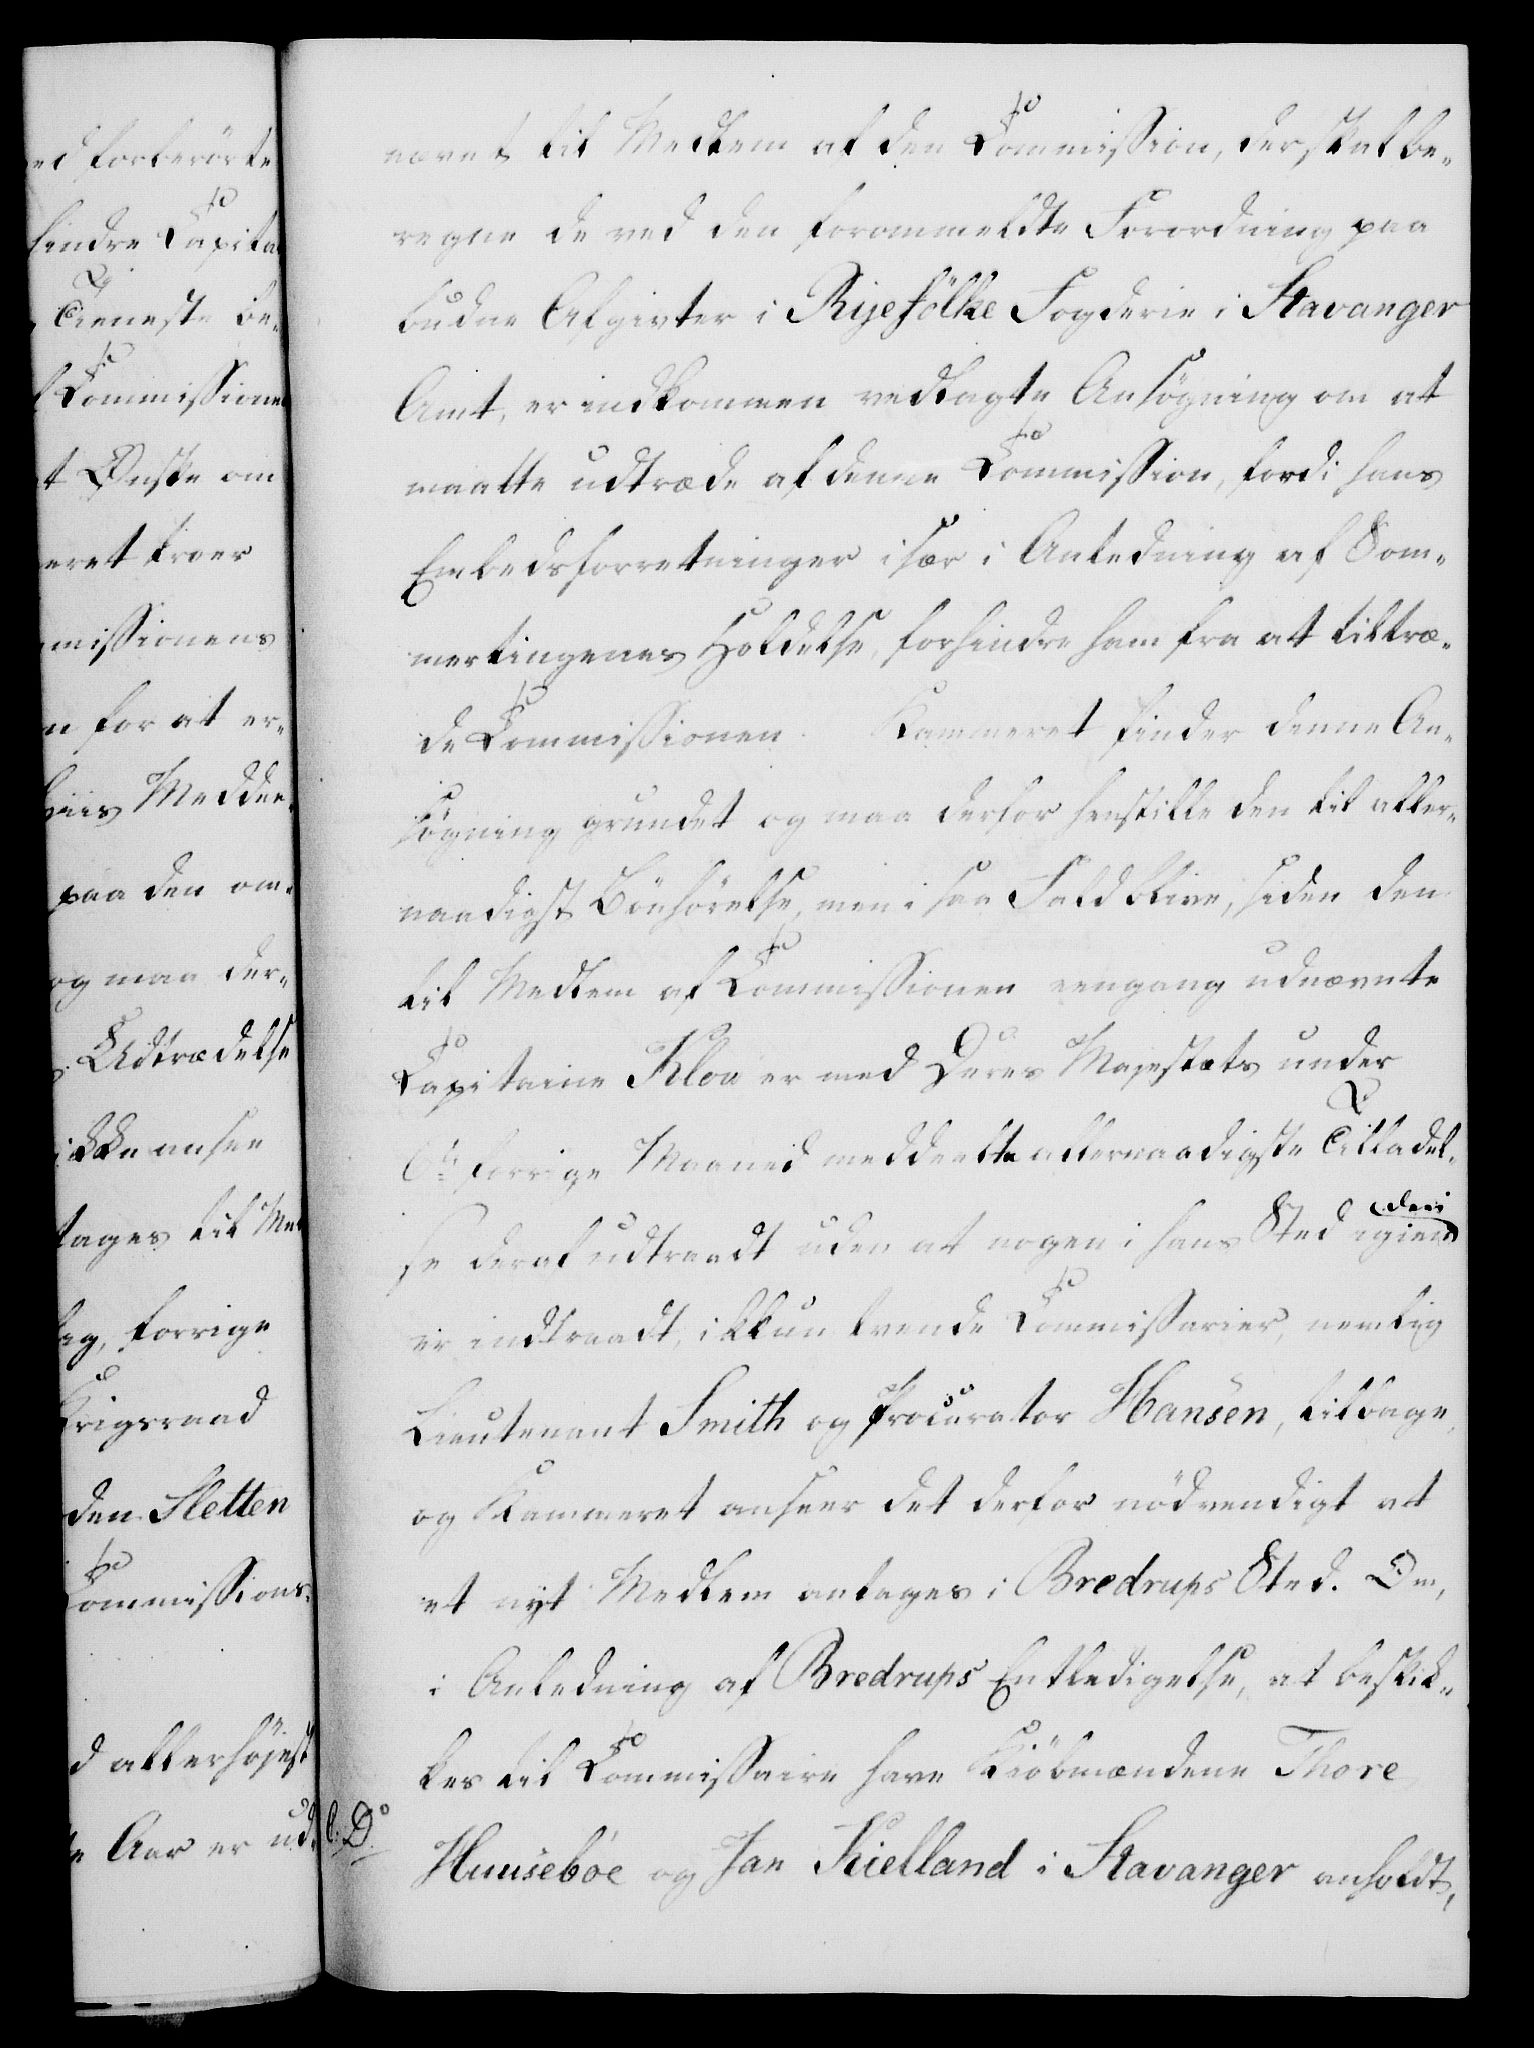 ed forberörte
hindre Capita
Tieneste be-
f Commissione
t Ønske om
eret troer
missionens
n for at er-
Meddee-
paa den om-
og maa der-
Udtrædelse
ikke ansee
tages til Me
forrige
Krigsraad
den Sletten
Commissions-
d allerhöjest
Aar er ud-
nævnt til Medlem af den Commission, der skal be-
regne de ved den forommeldte Forordning paa
budne Afgivter i Ryefölke Fogderie i Stavanger
Amt, er indkommen vedlagte Ansögning om at
maatte udtræde af denne Commission, fordi hans
Embedsforretninger især i Anledning af Som-
mertingenes Holdelse, forhindre ham fra at tiltræ-
de Commissionen. Kammeret finder denne An-
sögning grundet og maa derfor henstille den til aller-
naadigst Bönhörelse, men i saa Fald blive, siden den
til Medlem af Commissionen eengang udnævnte
Capitaine Klou er med Deres Majestæts under
6te forrige Maaned meddeelte allernaadigste Tilladel-
se deraf udtraadt uden at nogen i hans Sted igien
er indtraadt, ikkun tvende Commissarier, nemlig
Lieutenant Smith og Procurator Hansen, tilbage,
og Kammeret anseer det derfor nödvendigt at
et nyt Medlem antages i Bredrups Sted. Om,
i Anledning af Bredrups Entledigelse, at beskik-
kes til Commissaire have Kiöbmændene Thore
C: D.
Huuseböe og Jan Kielland i Stavanger anholdt,